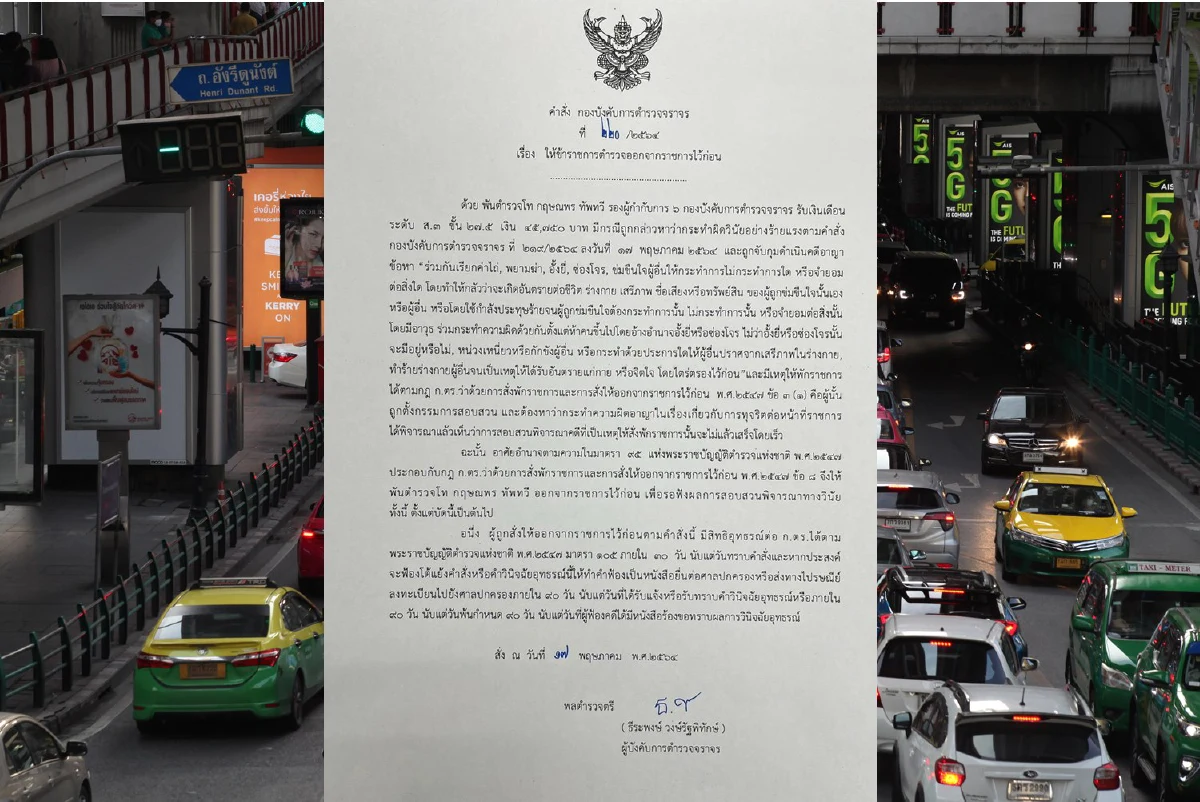 ถ.อังรีดูนังต์
Henri Dunant Rd.
คำสั่ง กองบังคับการตำรวจจราจร
ที่ ๒๒๐ /๒๕๖๔
เรื่อง ให้ข้าราชการตำรวจออกจากราชการไว้ก่อน
ด้วย พันตำรวจโท กฤษณพร ทัพทวี รองผู้กำกับการ ๖ กองบังคับการตำรวจจราจร รับเงินเดือน
ระดับ ส.๓ ขั้น ๒๗.๕ เงิน ๔๕,๗๕๐ บาท มีกรณีถูกกล่าวหาว่ากระทำผิดวินัยอย่างร้ายแรงตามคำสั่ง
กองบังคับการตำรวจจราจร ที่ ๒๑๙/๒๕๖๔ ลงวันที่ ๑๗ พฤษภาคม ๒๕๖๔ และถูกจับกุมดำเนินคดีอาญา
ข้อหา "ร่วมกันเรียกค่าไถ่, พยามฆ่า, อั้งยี่, ซ่องโจร, ข่มขืนใจผู้อื่นให้กระทำการไม่กระทำการใด หรือจำยอม
ต่อสิ่งใด โดยทำให้กลัวว่าจะเกิดอันตรายต่อชีวิต ร่างกาย เสรีภาพ ชื่อเสียงหรือทรัพย์สิน ของผู้ถูกข่มขืนใจนั้นเอง
หรือผู้อื่น หรือโดยใช้กำลังประทุษร้ายจนผู้ถูกข่มขืนใจต้องกระทำการนั้น ไม่กระทำการนั้น หรือจำยอมต่อสิ่งนั้น
โดยมีอาวุธ ร่วมกระทำความผิดด้วยกันตั้งแต่ห้าคนขึ้นไปโดยอ้างอำนาจอั้งยี่หรือซ่องโจร ไม่ว่าอั้งยี่หรือซ่องโจรนั้น
จะมีอยู่หรือไม่, หน่วงเหนี่ยวหรือกักขังผู้อื่น หรือกระทำด้วยประการใดให้ผู้อื่นปราศจากเสรีภาพในร่างกาย,
ทำร้ายร่างกายผู้อื่นจนเป็นเหตุให้ได้รับอันตรายแก่กาย หรือจิตใจ โดยไตร่ตรองไว้ก่อน"และมีเหตุให้พักราชการ
ได้ตามกฎ ก.ตร.ว่าด้วยการสั่งพักราชการและการสั่งให้ออกจากราชการไว้ก่อน พ.ศ.๒๕๔๗ ข้อ ๓ (๑) คือผู้นั้น
ถูกตั้งกรรมการสอบสวน และต้องหาว่ากระทำความผิดอาญาในเรื่องเกี่ยวกับการทุจริตต่อหน้าที่ราชการ
ได้พิจารณาแล้วเห็นว่าการสอบสวนพิจารณาคดีที่เป็นเหตุให้สั่งพักราชการนั้นจะไม่แล้วเสร็จโดยเร็ว
ฉะนั้น อาศัยอำนาจตามความในมาตรา ๙๕ แห่งพระราชบัญญัติตำรวจแห่งชาติ พ.ศ.๒๕๔๗
ประกอบกับกฎ ก.ตร.ว่าด้วยการสั่งพักราชการและการสั่งให้ออกจากราชการไว้ก่อน พ.ศ.๒๕๔๗ ข้อ ๘ จึงให้
พันตำรวจโท กฤษณพร ทัพทวี ออกจากราชการไว้ก่อน เพื่อรอฟังผลการสอบสวนพิจารณาทางวินัย
ทั้งนี้ ตั้งแต่บัดนี้เป็นต้นไป
อนึ่ง ผู้ถูกสั่งให้ออกจากราชการไว้ก่อนตามคำสั่งนี้ มีสิทธิอุทธรณ์ต่อ ก.ตร.ได้ตาม
พระราชบัญญัติตำรวจแห่งชาติ พ.ศ.๒๕๔๗ มาตรา ๑๐๕ ภายใน ๓๐ วัน นับแต่วันทราบคำสั่งและหากประสงค์
จะฟ้องโต้แย้งคำสั่งหรือคำวินิจฉัยอุทธรณ์นี้ให้ทำคำฟ้องเป็นหนังสือยื่นต่อศาลปกครองหรือส่งทางไปรษณีย์
ลงทะเบียนไปยังศาลปกครองภายใน ๙๐ วัน นับแต่วันที่ได้รับแจ้งหรือรับทราบคำวินิจฉัยอุทธรณ์หรือภายใน
๙๐ วัน นับแต่วันพ้นกำหนด ๙๐ วัน นับแต่วันที่ผู้ฟ้องคดีได้มีหนังสือร้องขอทราบผลการวินิจฉัยอุทธรณ์
สั่ง ณ วันที่ ๑๗ พฤษภาคม พ.ศ.๒๕๖๔
พลตำรวจตรี
( ธีระพงษ์ วงษ์รัฐพิทักษ์ )
ผู้บังคับการตำรวจจราจร
KERRY
ON
AIS
5G
AIS
5G
THE FUT
AIS
5G
THE FUT
TAXI - METER